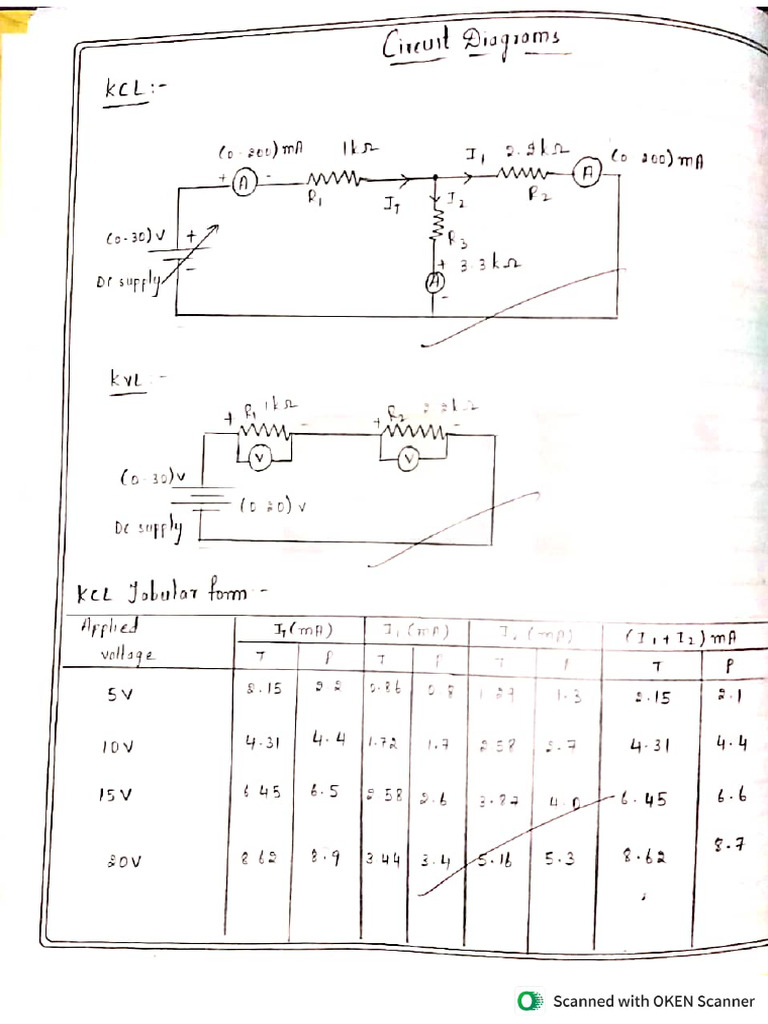 Circuit Diagrams
KCL:-
(0-200)mA 1kΩ I1 2.2kΩ (0 200)mA
+ A - R1 IT I2 R2 A
(0-30)V + R3
DC supply - + 3.3kΩ
A
-
KVL:-
+ R1 1kΩ - + R2 2.2kΩ -
V V
(0-30)V
(0 20)V
DC supply
KCL Tabular form -
Applied IT(mA) I1(mA) I2(mA) (I1+I2)mA
voltage T P T P T P T P
5V 2.15 2.2 0.86 0.8 1.27 1.3 2.15 2.1
10V 4.31 4.4 1.72 1.7 2 58 2.7 4.31 4.4
15V 6 45 6.5 2 58 2.6 3.87 4.0 6.45 6.6
20V 8 62 8.9 3 44 3.4 5.16 5.3 8.62 8.7
Scanned with OKEN Scanner